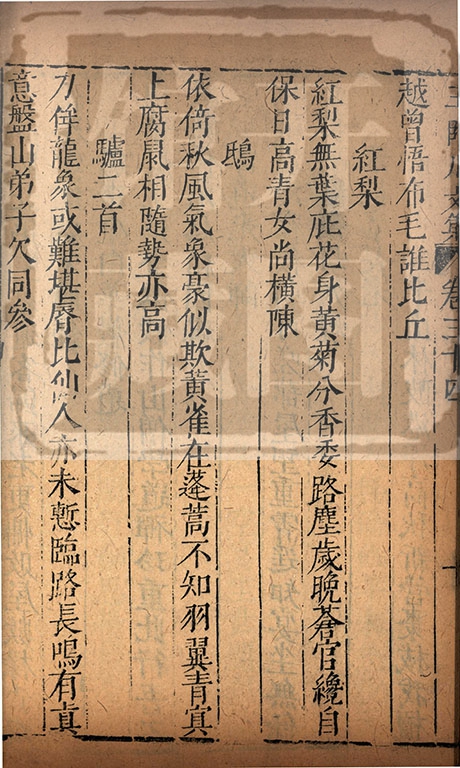 卷三十四
越曾悟布毛誰比丘
紅梨
紅梨無葉庇花身黃菊分香委路塵歲晚蒼官纔自
保日高青女尚橫陳
鴟
依倚秋風氣象豪似欺黃雀在蓬蒿不知羽翼青冥
上腐鼠相隨勢亦高
驢二首
力侔龍象或難堪辱比仙人亦未慙臨路長鳴有真
意盤山弟子欠同參